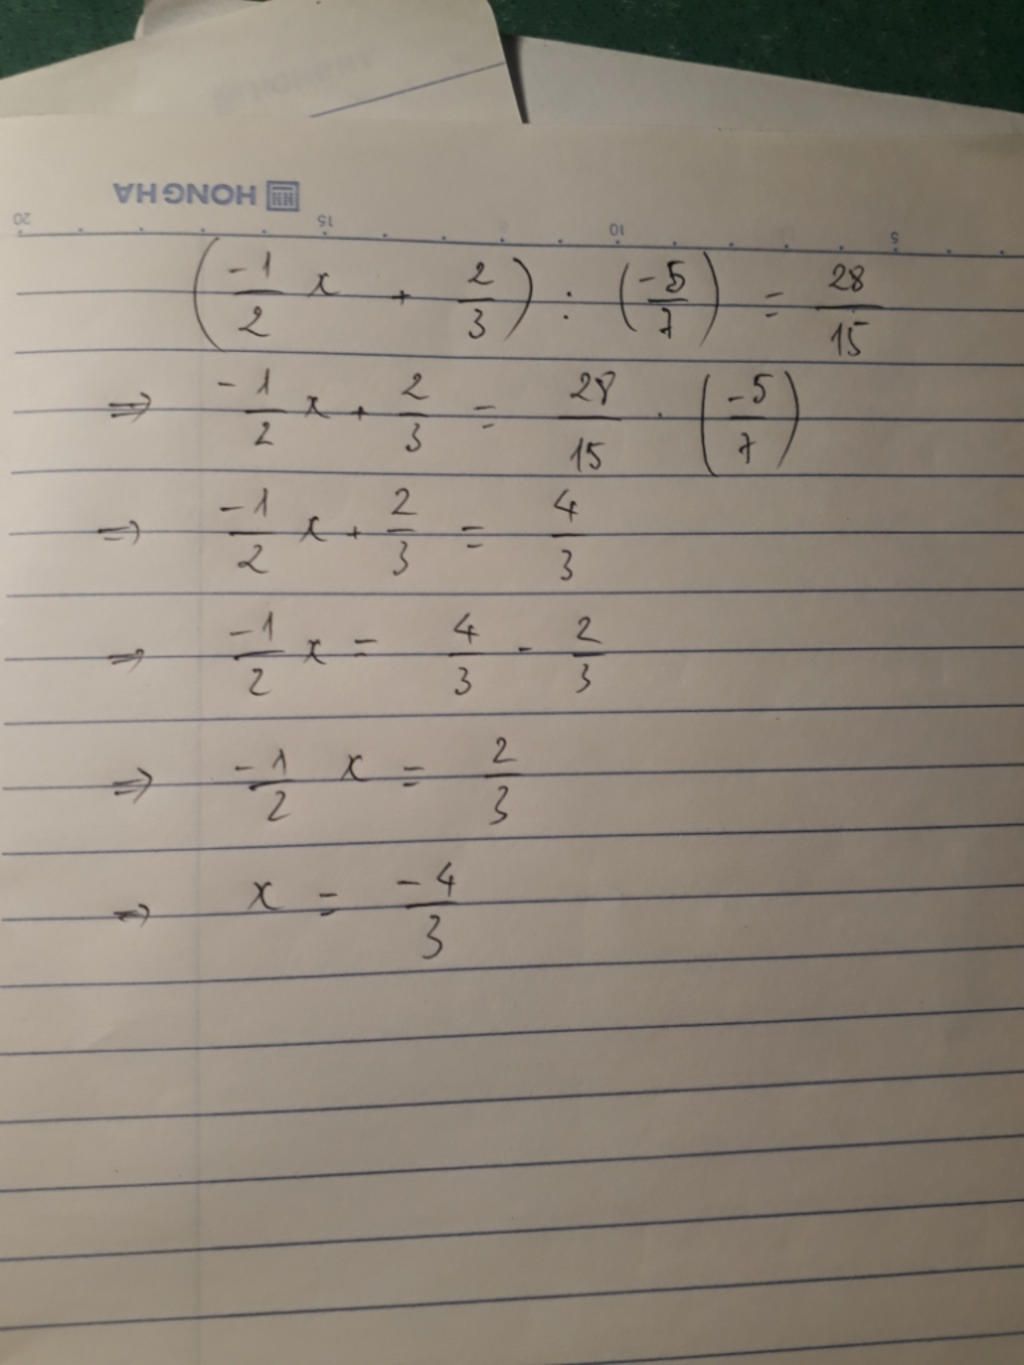 HONG HA
20 15 10 5
(-1/2 x + 2/3) : (-5/7) = 28/15
⇒ -1/2 x + 2/3 = 28/15 . (-5/7)
⇒ -1/2 x + 2/3 = 4/3
⇒ -1/2 x = 4/3 - 2/3
⇒ -1/2 x = 2/3
⇒ x = -4/3